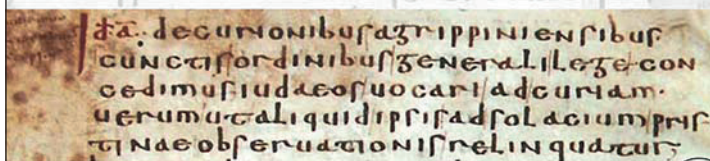 Id̄ ā. decurionibus agrippiniensibus.
cunctis ordinibus generali lege con
cedimus iudaeos uocari ad curiam.
uerum ut aliquid ipsis ad solacium pris
tinae obseruationis relinquatur